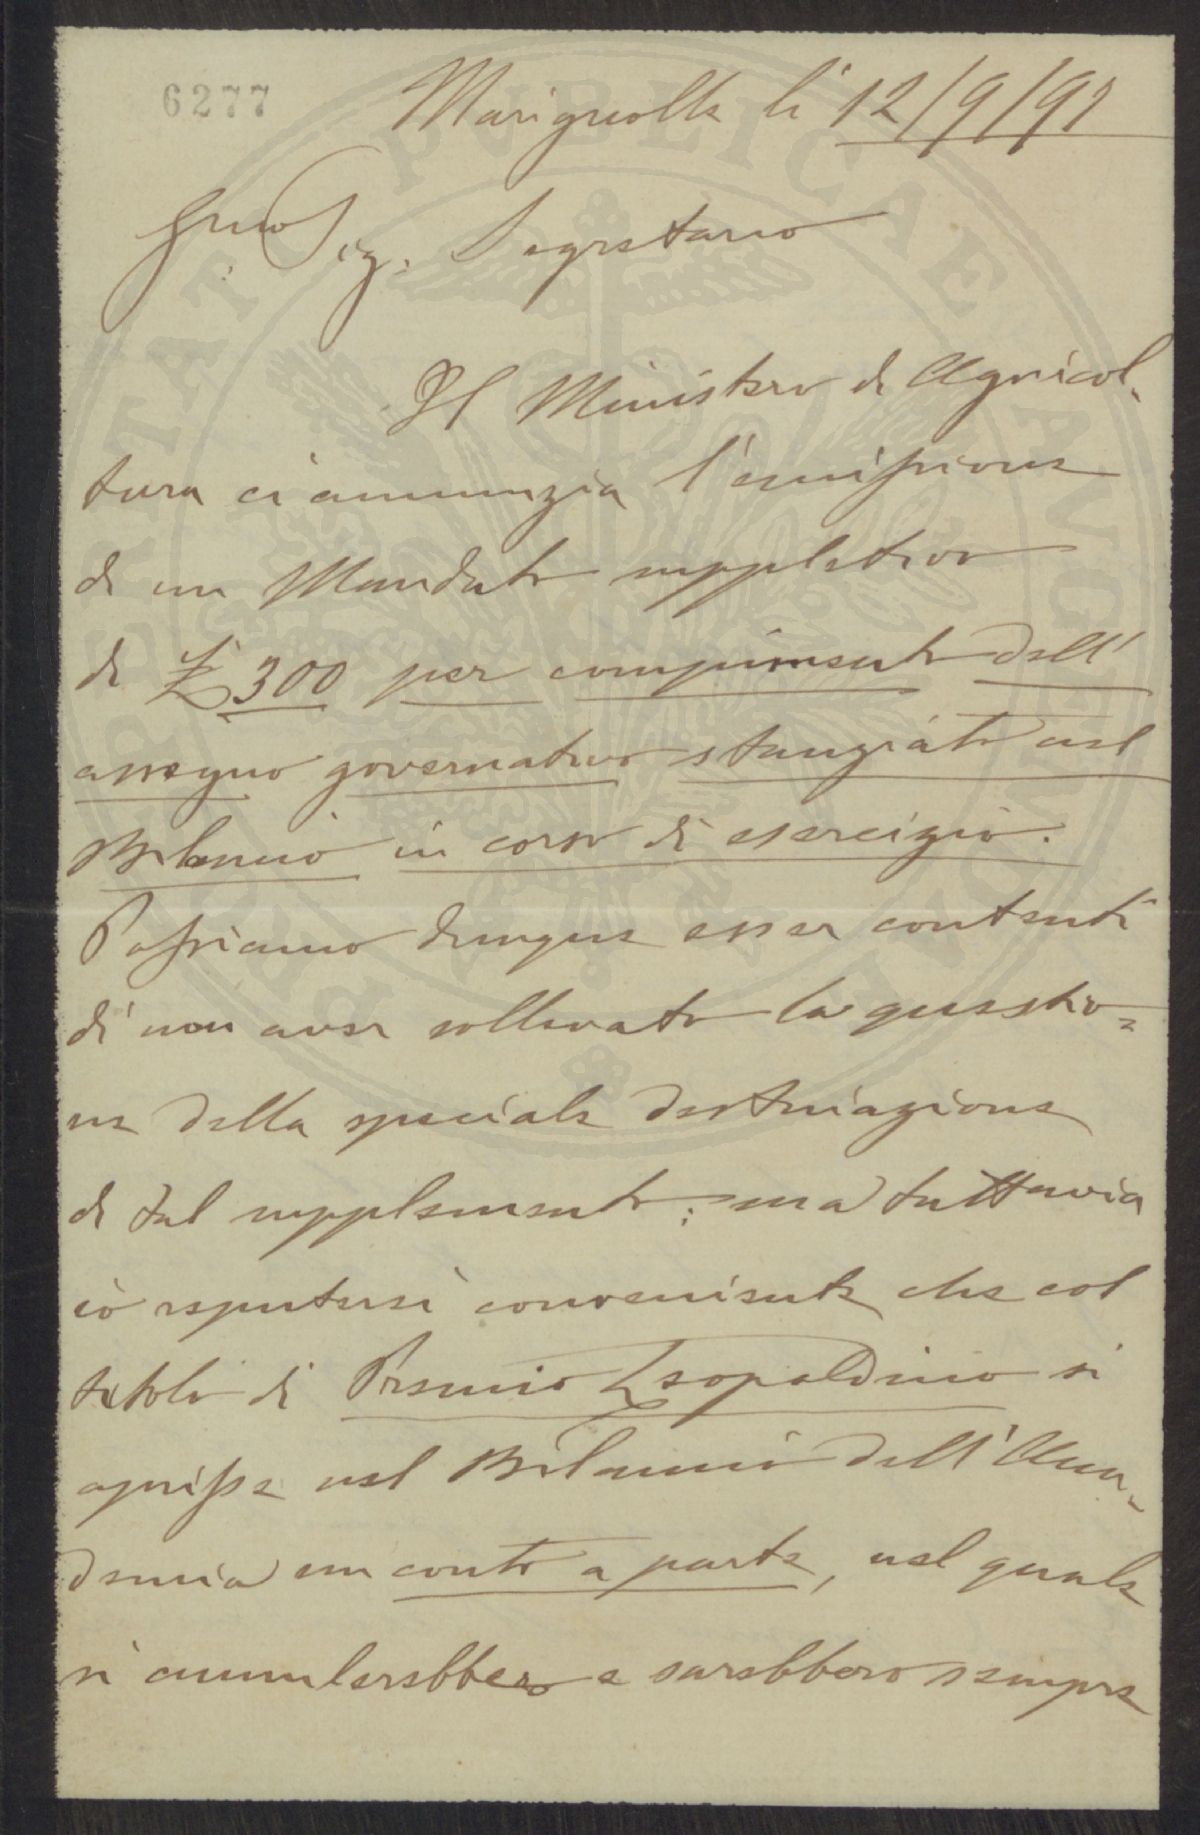 6277
Marignolle li 12/9/91
Gmo Sig. Segretario
Il Ministero di Agricol-
tura ci annunzia l'emissione
di un Mandato suppletivo
di £ 300 per compimento dell'
assegno governativo stanziato nel
Bilancio in corso di esercizio.
Possiamo dunque esser contenti
di non aver sollevato la questio=
ne della speciale destinazione
di tal supplemento; ma tuttavia
io reputerei conveniente che col
titolo di Premio Leopoldino si
aprisse nel Bilancio dell'Acca-
demia un conto a parte, nel quale
si cumulerebbero e sarebbero sempre
PROSPERITATI PUBLICAE AUGENDAE